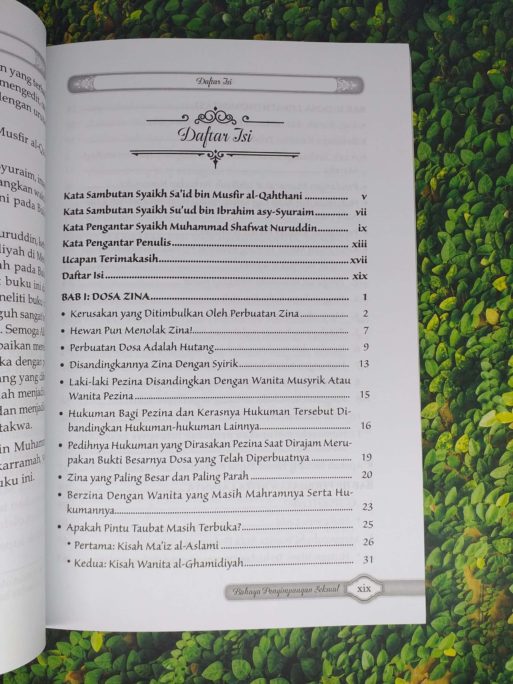 n yang ter
mengedit,
dengan uru
Musfir al-Qa
syuraim, m
angkan wak
ni pada Ba
uruddin, ke
liyah di Me
ah pada Bu
t buku ini d
neliti buku
guh sangat
. Semoga Al
baikan mere
ka dengan p
ang yang da
ah menjadi
dan menjadi
takwa.
in Muhamm
karramah
uku ini.
Daftar Isi
Daftar Isi
Kata Sambutan Syaikh Sa'id bin Musfir al-Qahthani ........ v
Kata Sambutan Syaikh Su'ud bin Ibrahim asy-Syuraim ........ vii
Kata Pengantar Syaikh Muhammad Shafwat Nuruddin ........ ix
Kata Pengantar Penulis ........ xiii
Ucapan Terimakasih ........ xvii
Daftar Isi ........ xix
BAB I: DOSA ZINA ........ 1
• Kerusakan yang Ditimbulkan Oleh Perbuatan Zina ........ 2
• Hewan Pun Menolak Zina! ........ 7
• Perbuatan Dosa Adalah Hutang ........ 9
• Disandingkannya Zina Dengan Syirik ........ 13
• Laki-laki Pezina Disandingkan Dengan Wanita Musyrik Atau
Wanita Pezina ........ 15
• Hukuman Bagi Pezina dan Kerasnya Hukuman Tersebut Di-
bandingkan Hukuman-hukuman Lainnya ........ 16
• Pedihnya Hukuman yang Dirasakan Pezina Saat Dirajam Meru-
pakan Bukti Besarnya Dosa yang Telah Diperbuatnya ........ 19
• Zina yang Paling Besar dan Paling Parah ........ 20
• Berzina Dengan Wanita yang Masih Mahramnya Serta Hu-
kumannya ........ 23
• Apakah Pintu Taubat Masih Terbuka? ........ 25
* Pertama: Kisah Ma'iz al-Aslami ........ 26
* Kedua: Kisah Wanita al-Ghamidiyah ........ 31
Bahaya Penyimpangan Seksual xix